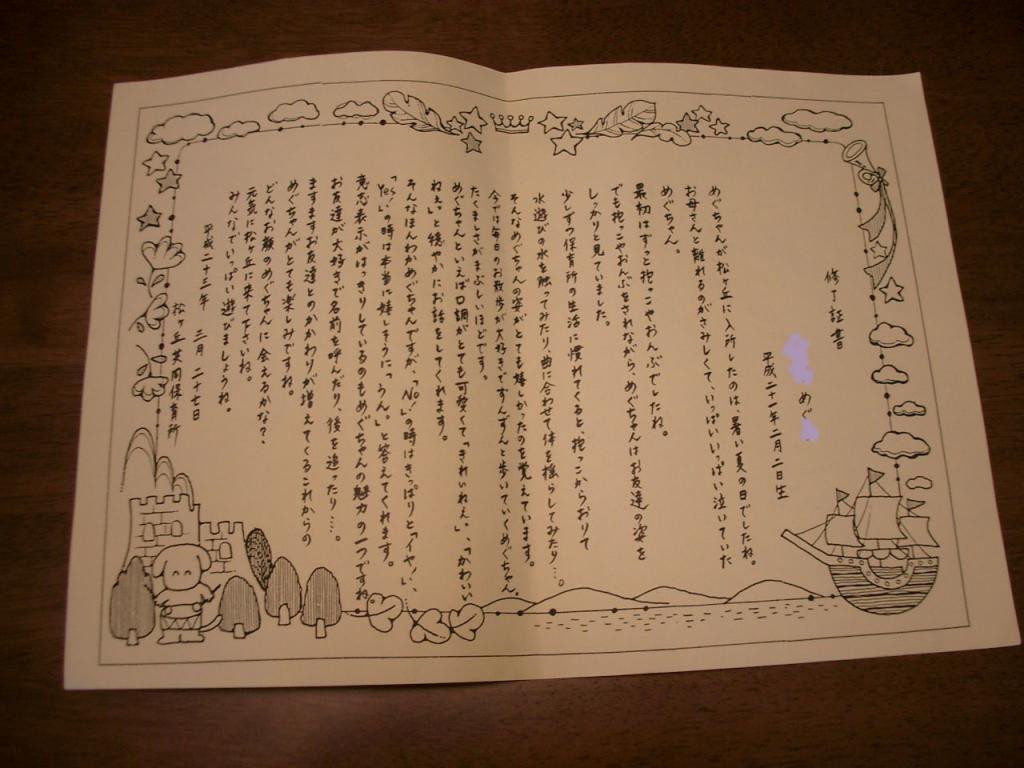 修了証書
めぐ
平成二十一年二月二日生
めぐちゃんが松ヶ丘に入所したのは、暑い夏の日でしたね。
お母さんと離れるのがさみしくて、いっぱいいっぱい泣いていた
めぐちゃん。
最初はずっと抱っこやおんぶでしたね。
でも抱っこやおんぶをされながら、めぐちゃんはお友達の姿を
しっかりと見ていました。
少しずつ保育所の生活に慣れてくると、抱っこからおりて
水遊びの水を触ってみたり、曲に合わせて体を揺らしてみたり…。
そんなめぐちゃんの姿がとても嬉しかったのを覚えています。
今では毎日のお散歩が大好きでずんずんと歩いていくめぐちゃん。
たくましさがまぶしいほどです。
めぐちゃんといえば口調がとても可愛くて「きれいねぇ」、「かわいい
ねぇ」と穏やかにお話をしてくれます。
そんなほんわかめぐちゃんですが、「No!」の時はきっぱりと「イヤ!」、
「Yes!」の時は本当に嬉しそうに、「うん。」と答えてくれます。
意志表示がはっきりしているのもめぐちゃんの魅力の一つですね。
お友達が大好きで名前を呼んだり、後を追ったり…。
ますますお友達とのかかわりが増えてくるこれからの
めぐちゃんがとても楽しみですね。
どんなお顔のめぐちゃんに会えるかな?
元気に松ヶ丘に来て下さいね。
みんなでいっぱい遊びましょうね。
平成二十三年 三月 二十七日
松ヶ丘共同保育所